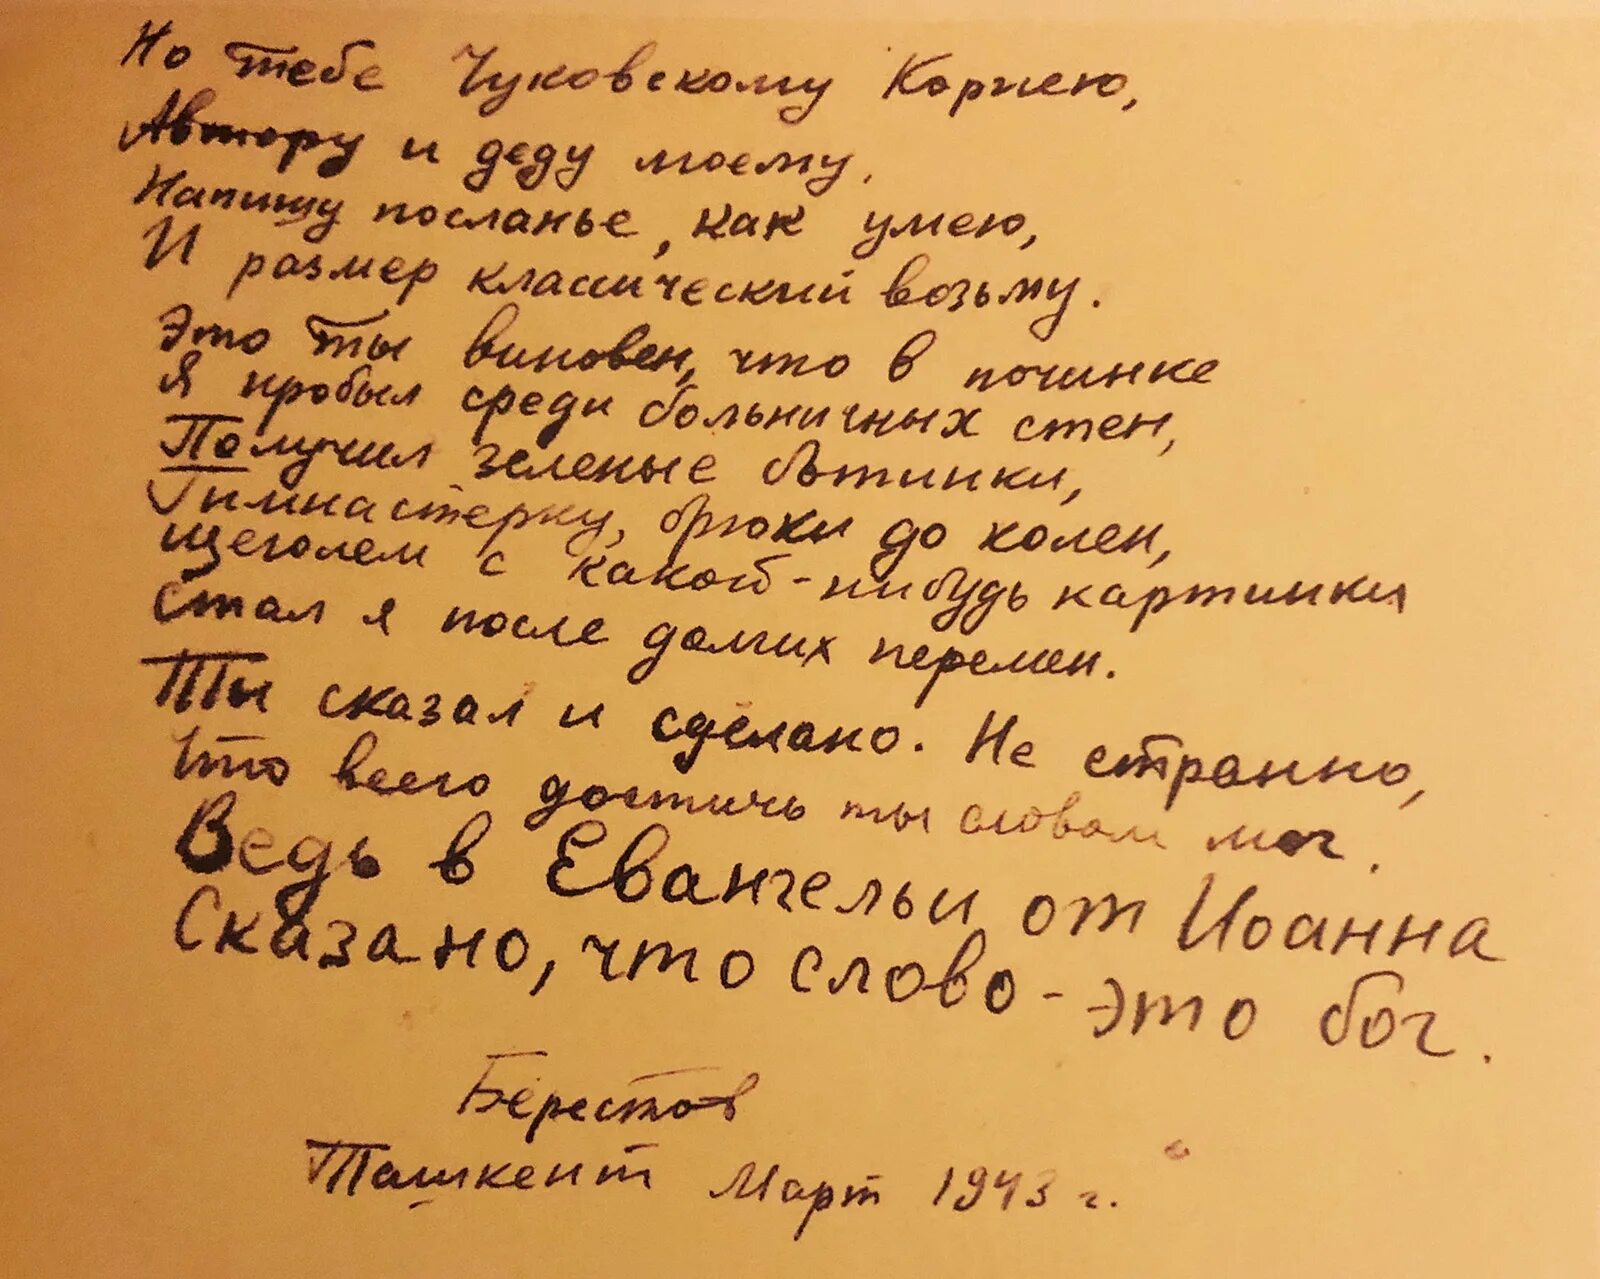 Но тебе Чуковскому Корнею,
Автору и деду моему,
Напишу посланье, как умею,
И размер классический возьму.
Это ты виновен, что в починке
Я пробыл среди больничных стен,
Получил зеленые ботинки,
Гимнастерку, брюки до колен,
Щеголем с какой-нибудь картинки
Стал я после долгих перемен.
Ты сказал и сделано. Не странно,
Что всего достичь ты словом мог.
Ведь в Евангельи от Иоанна
Сказано, что слово - это бог.
Берестов
Ташкент Март 1943 г.